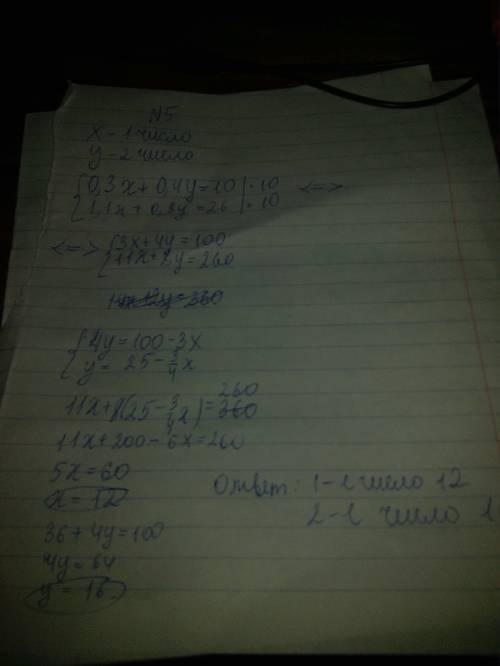 N5
x - 1 число
y - 2 число
{0,3x + 0,4y = 10 | · 10 <=>
{1,1x + 0,8y = 26 | · 10
<=> {3x + 4y = 100
{11x + 8y = 260
{4y = 100 - 3x
{y = 25 - 3/4 x
260
11x + 8(25 - 3/4 x) = 360
11x + 200 - 6x = 260
5x = 60
x = 12
36 + 4y = 100
4y = 64
y = 16
Ответ: 1-е число 12
2-е число 1